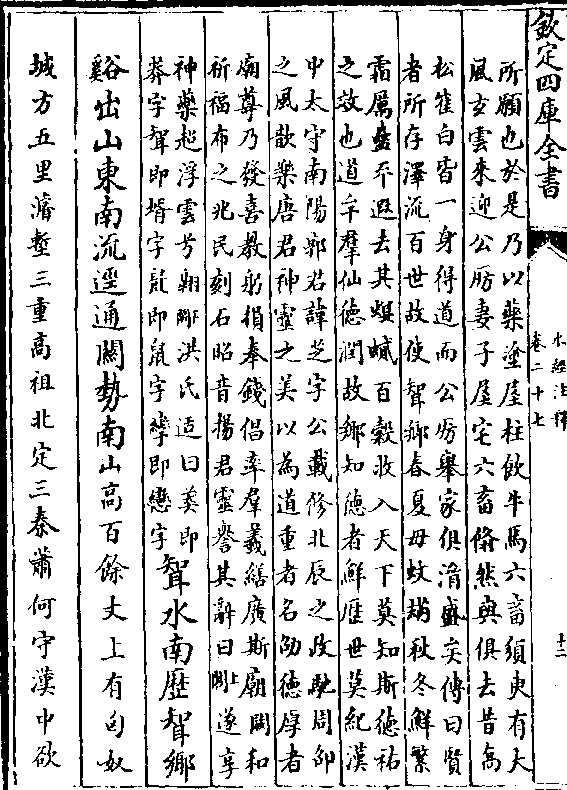 欽定四庫全書
水經注釋
卷二十七
十二
所願也於是乃以藥塗屋柱飲牛馬六畜須臾有大
風玄雲來迎公房妻子屋宅六畜翛然與俱去昔喬
松崔白皆一身得道而公房舉家俱濟盛矣傳曰賢
者所存澤流百世故使聟鄉春夏毋蚊蚋秋冬鮮繁
霜厲蠱不遐去其螟蟘百穀收入天下莫知斯德祐
之效也道牟羣仙德潤故鄉知德者鮮歷世莫紀漢
中太守南陽郭君諱芝字公載修北辰之政馳周卲
之風歆樂唐君神靈之美以為道重者名邵德厚者
廟尊乃發嘉教躬損奉錢倡率羣義繕廣斯廟闕和
祈福布之兆民刻石昭音揚君靈譽其辭曰闕上遂享
神藥超浮雲兮翱闕洪氏适曰即
莽字聟即壻字即鼠字孿即戀字
聟水南歷聟鄉
谿出山東南流逕通關勢南山高百餘丈上有匈奴
城方五里濬塹三重高祖北定三秦蕭何守漢中欲